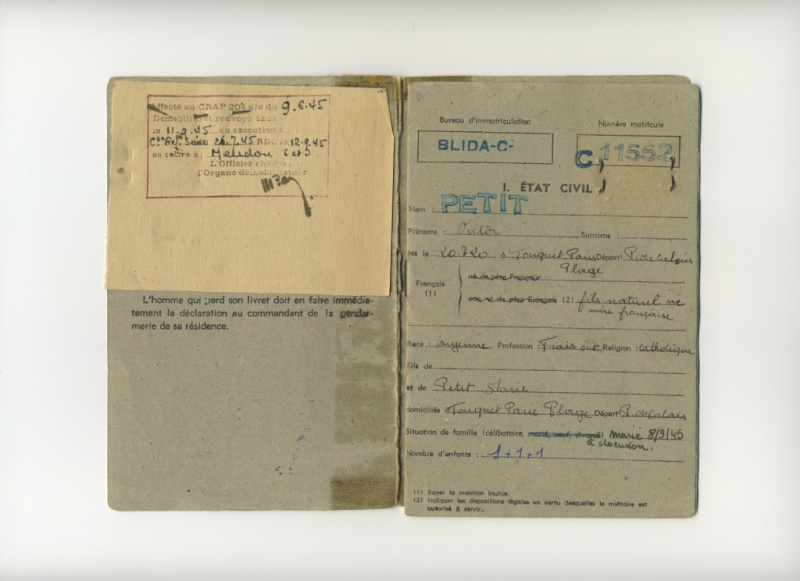 Affecté au CRAP 202 s/c du 9.6.45
Démobilisé et renvoyé dans
le 11.9.45 en exécution
26.7.45 12.9.45
se retire à Meudon S et O
L'Officier
l'Organe démobilisateur
L'homme qui perd son livret doit en faire immédia-
tement la déclaration au commandant de la gendar-
merie de sa résidence.
Bureau d'immatriculation
BLIDA-C-
Numéro matricule
C 11552
I. ÉTAT CIVIL
Nom : PETIT
Prénoms : Victor Surnoms :
Né le 20.7.20 à Touquet Paris Départ P. de Calais
Plage
Français
(1)
né de père Français
(2) fils naturel
mère française
Race : aryenne Profession : Religion : catholique
Fils de
et de Petit
domiciliés à Touquet Paris Plage Départ P. de Calais
Situation de famille (célibataire, marié, veuf, divorcé) marié 8/9/45
à Meudon.
Nombre d'enfants : 1+1+1
(1) Rayer la mention inutile.
(2) Indiquer les dispositions légales en vertu desquelles le militaire est
autorisé à servir.